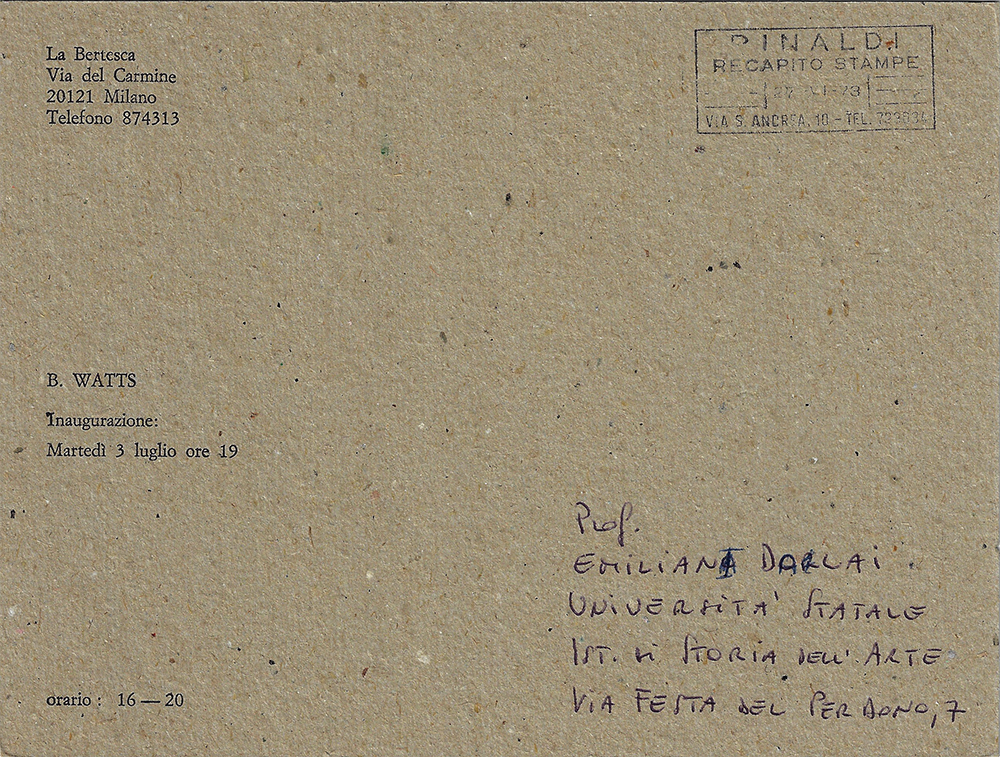 La Bertesca
Via del Carmine
20121 Milano
Telefono 874313
RINALDI
RECAPITO STAMPE
VIA S. ANDREA, 10 - TEL.
B. WATTS
Inaugurazione:
Martedì 3 luglio ore 19
Prof.
EMILIANI
UNIVERSITA' STATALE
IST. DI STORIA DELL'ARTE
VIA FESTA DEL PERDONO, 7
orario : 16 — 20